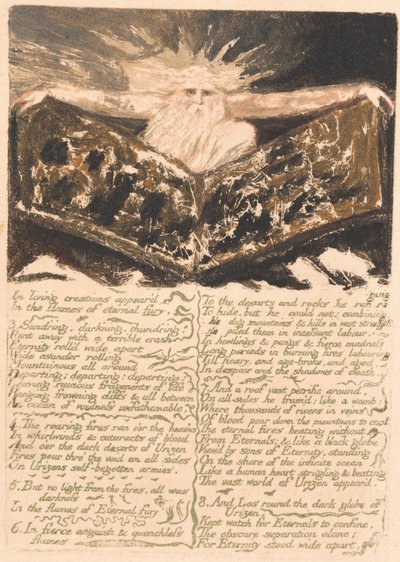 In living creations appear'd
In the flames of eternal fury.
3. Sund'ring, dark'ning, thund'ring
Rent away with a terrible crash
Eternity roll'd wide apart
Wide asunder rolling
Mountainous all around
Departing; departing; departing:
Leaving ruinous fragments of life
Hanging frowning cliffs & all between
An ocean of voidness unfathomable.
4. The roaring fires ran o'er the heav'ns
In whirlwinds & cataracts of blood
And o'er the dark desarts of Urizen
Fires pour thro' the void on all sides
On Urizens self-begotten armies.
5. But no light from the fires. all was
darkness
In the flames of Eternal fury
6. In fierce anguish & quenchless
flames
ging
To the desarts and rocks he ran ra
To hide, but he could not: combining
He dug mountains & hills in vast strength,
He piled them in incessant labour,
In howlings & pangs & fierce madness
Long periods in burning fires labouring
Till hoary, and age-broke, and aged,
In despair and the shadows of death.
7. And a roof, vast petrific around,
On all sides he fram'd: like a womb;
Where thousands of rivers in veins
Of blood pour down the mountains to cool
The eternal fires beating without
From Eternals; & like a black globe
View'd by sons of Eternity, standing
On the shore of the infinite ocean
Like a human heart strugling & beating
The vast world of Urizen appear'd.
8. And Los round the dark globe of
Urizen,
Kept watch for Eternals to confine,
The obscure separation alone;
For Eternity stood wide apart,